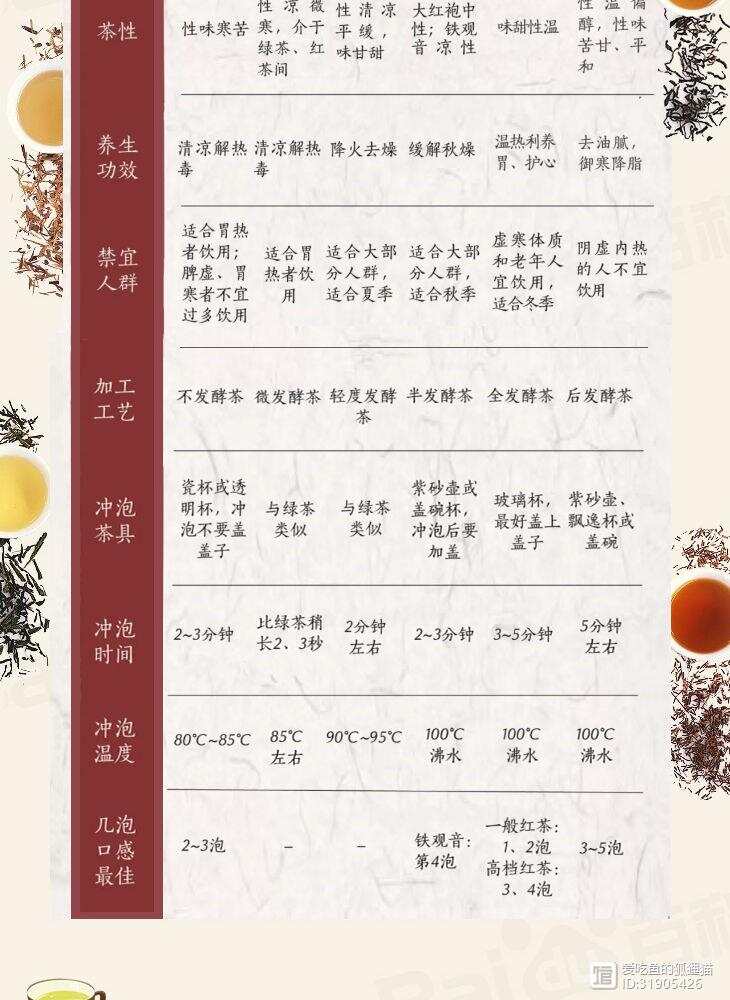 茶性
性味寒苦
性凉微
寒，介于
绿茶、红
茶间
性清凉
平缓，
味甘甜
大红袍中
性；铁观
音凉性
味甜性温
性温偏
醇，性味
苦甘、平
和
养生
功效
清凉解热
毒
清凉解热
毒
降火去燥
缓解秋燥
温热利养
胃、护心
去油腻，
御寒降脂
禁宜
人群
适合胃热
者饮用；
脾虚、胃
寒者不宜
过多饮用
适合胃
热者饮
用
适合大部
分人群，
适合夏季
适合大部
分人群，
适合秋季
虚寒体质
和老年人
宜饮用，
适合冬季
阴虚内热
的人不宜
饮用
加工
工艺
不发酵茶
微发酵茶
轻度发酵
茶
半发酵茶
全发酵茶
后发酵茶
冲泡
茶具
瓷杯或透
明杯，冲
泡不要盖
盖子
与绿茶
类似
与绿茶
类似
紫砂壶或
盖碗杯，
冲泡后要
加盖
玻璃杯，
最好盖上
盖子
紫砂壶、
飘逸杯或
盖碗
冲泡
时间
2~3分钟
比绿茶稍
长2、3秒
2分钟
左右
2~3分钟
3~5分钟
5分钟
左右
冲泡
温度
80℃~85℃
85℃
左右
90℃~95℃
100℃
沸水
100℃
沸水
100℃
沸水
几泡
口感
最佳
2~3泡
–
–
铁观音：
第4泡
一般红茶：
1、2泡
高档红茶：
3、4泡
3~5泡
爱吃鱼的狐狸猫
ID:31905426